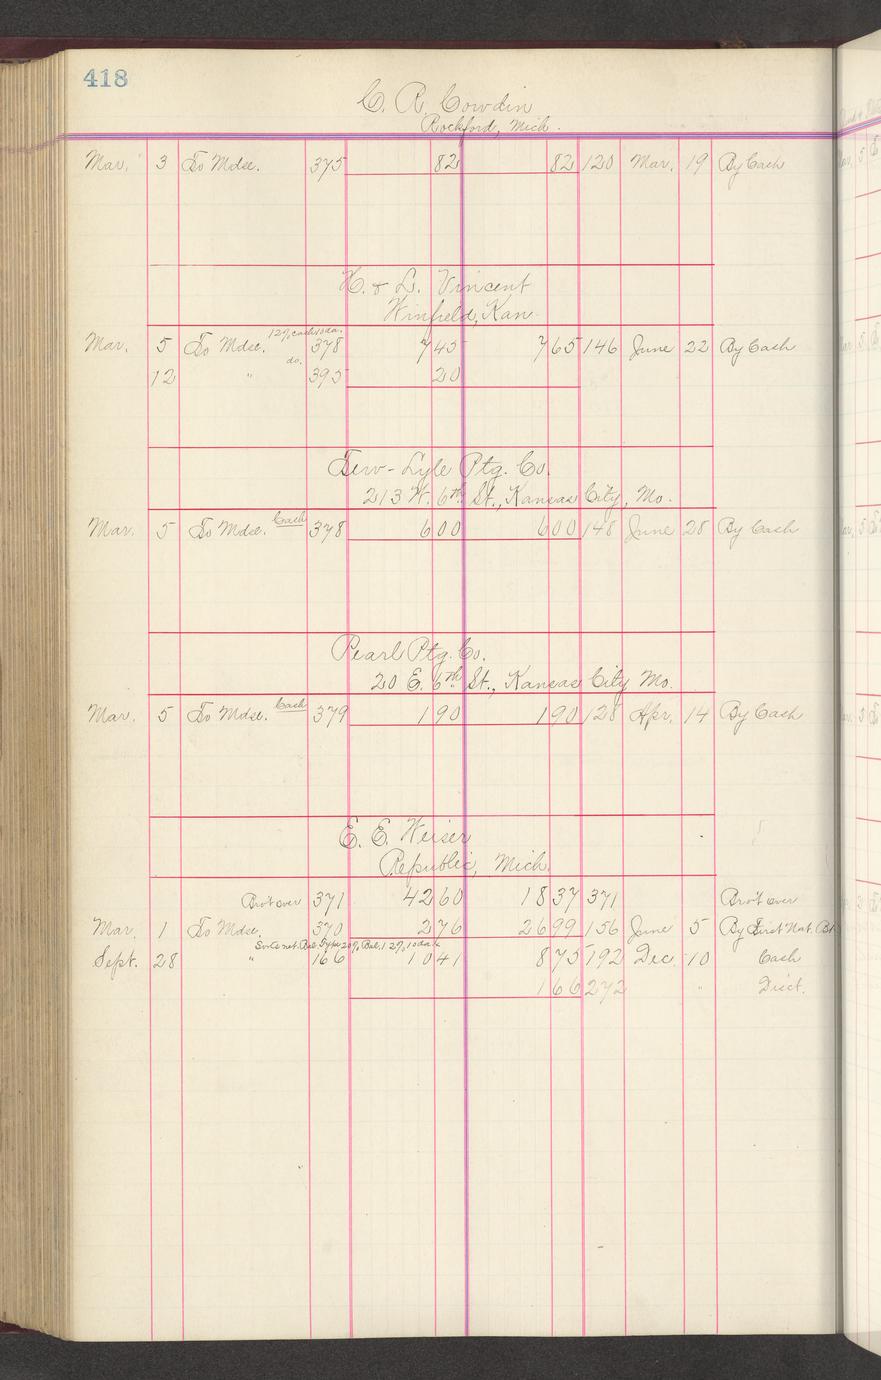 418
C. R. Cowdin
Rockford, Mich.
Mar. 3 To Mdse. 375 82 82 120 Mar. 19 By Cash
H. & L. Vincent
Winfield, Kan.
12% cash 10 da.
Mar. 5 To Mdse. 378 7 45 7 65 146 June 22 By Cash
do.
12 " 395 20
Tew-Lyle Ptg. Co.
213 W. 6th St., Kansas City, Mo.
Mar. 5 To Mdse. Cash 378 6 00 6 00 148 June 28 By Cash
Pearl Ptg. Co.
20 E. 6th St., Kansas City Mo.
Mar. 5 To Mdse. Cash 379 1 90 1 90 128 Apr. 14 By Cash
E. E. Weiser
Republic, Mich.
Bro't over 371 42 60 18 37 371 Bro't over
Mar. 1 To Mdse. 370 2 76 26 99 156 June 5 By First Nat. Bk
net. Bal. 12% 10 da.
Sept. 28 " 166 10 41 8 75 192 Dec. 10 Cash
1 66 272 " Disct.